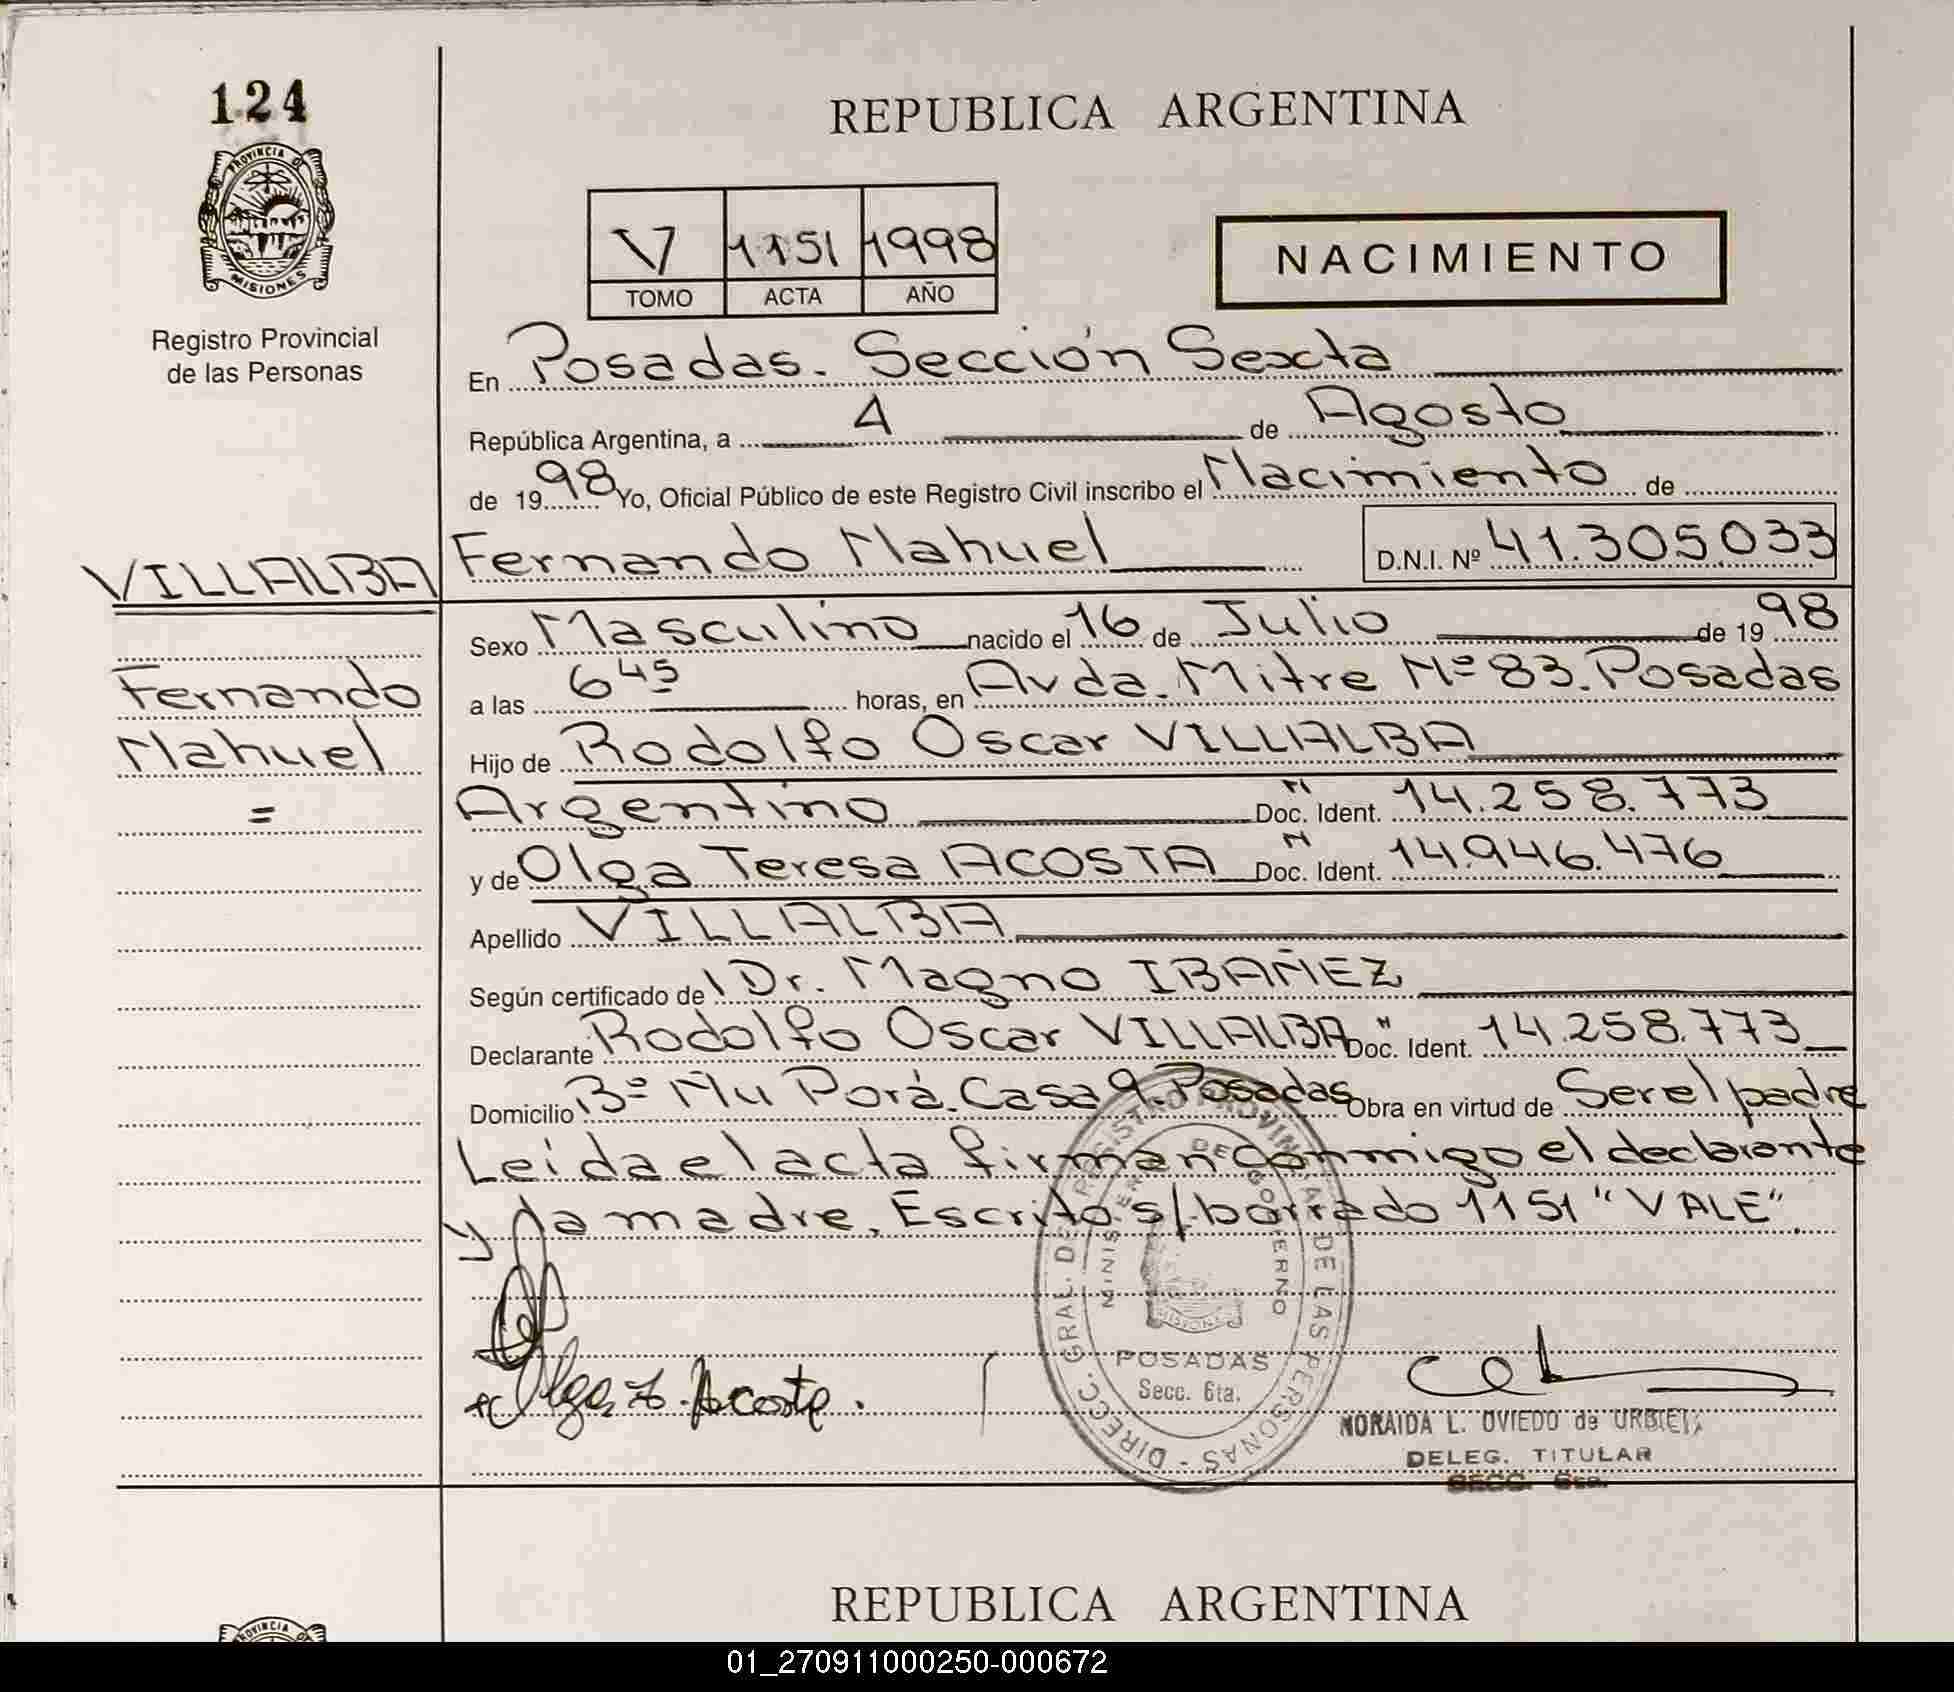 124
PROVINCIA DE
MISIONES
Registro Provincial
de las Personas
REPUBLICA ARGENTINA
V 1151 1998
TOMO ACTA AÑO
NACIMIENTO
En Posadas. Sección Sexta
República Argentina, a 4 de Agosto
de 1998 Yo, Oficial Público de este Registro Civil inscribo el Nacimiento de
VILLALBA Fernando Nahuel D.N.I. Nº 41.305.033
Sexo Masculino nacido el 16 de Julio de 1998
Fernando
a las 6 45 horas, en Avda. Mitre Nº 83. Posadas
Nahuel
Hijo de Rodolfo Oscar VILLALBA
=
Argentino Doc. Ident. N 14.258.773
y de Olga Teresa ACOSTA Doc. Ident. N 14.946.476
Apellido VILLALBA
Según certificado de Dr. Magno IBAÑEZ
Declarante Rodolfo Oscar VILLALBA Doc. Ident. " 14.258.773
Domicilio Bº Ñu Porá. Casa 9. Posadas Obra en virtud de Ser el padre
Leída el acta firman conmigo el declarante
y la madre. Escrito s/borrado 1151 "VALE".
DIRECC. GRAL. DEL REGISTRO PROVINCIAL DE LAS PERSONAS -
MINISTERIO DE GOBIERNO
MISIONES
POSADAS
Secc. 6ta.
Olga T. Acosta.
NORAIDA L. OVIEDO de URBIETA
DELEG. TITULAR
SECC. 6ta.
REPUBLICA ARGENTINA
PROVINCIA
01_270911000250-000672